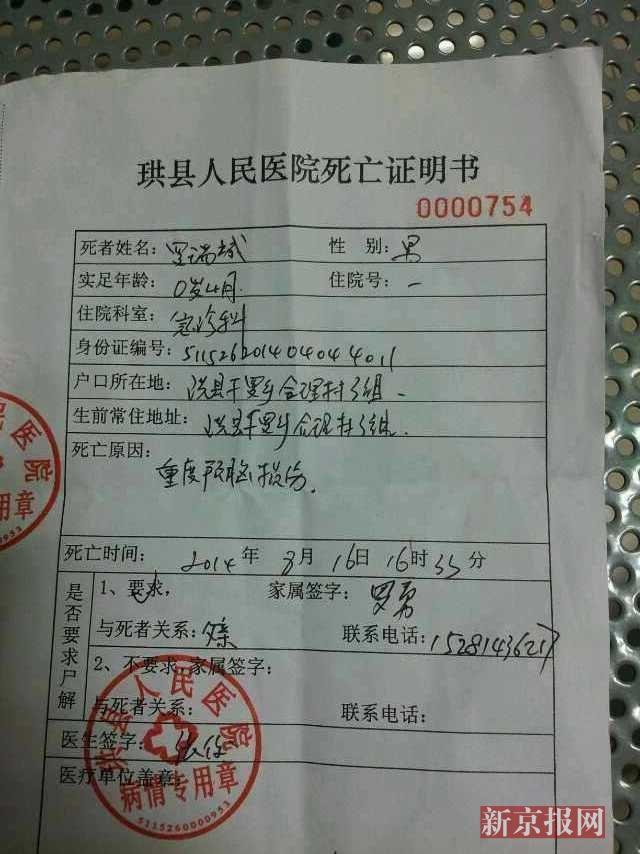 珙县人民医院死亡证明书
0000754
死者姓名：罗瑞 性别：男
实足年龄：0岁4月 住院号：一
住院科室：急诊科
身份证编号：511526201404044011
户口所在地：洪县 乡合理村3组
生前常住地址：洪县 乡合理村3组
死亡原因：
重度颅脑损伤.
死亡时间：2014年8月16日16时33分
是否要求尸解
1、要求， 家属签字：罗勇
与死者关系：父亲 联系电话：
2、不要求，家属签字：
与死者关系： 联系电话：
医生签字：
医疗单位盖章：
珙县人民医院
病情专用章
5115260000953
民医院
专用章
新京报网